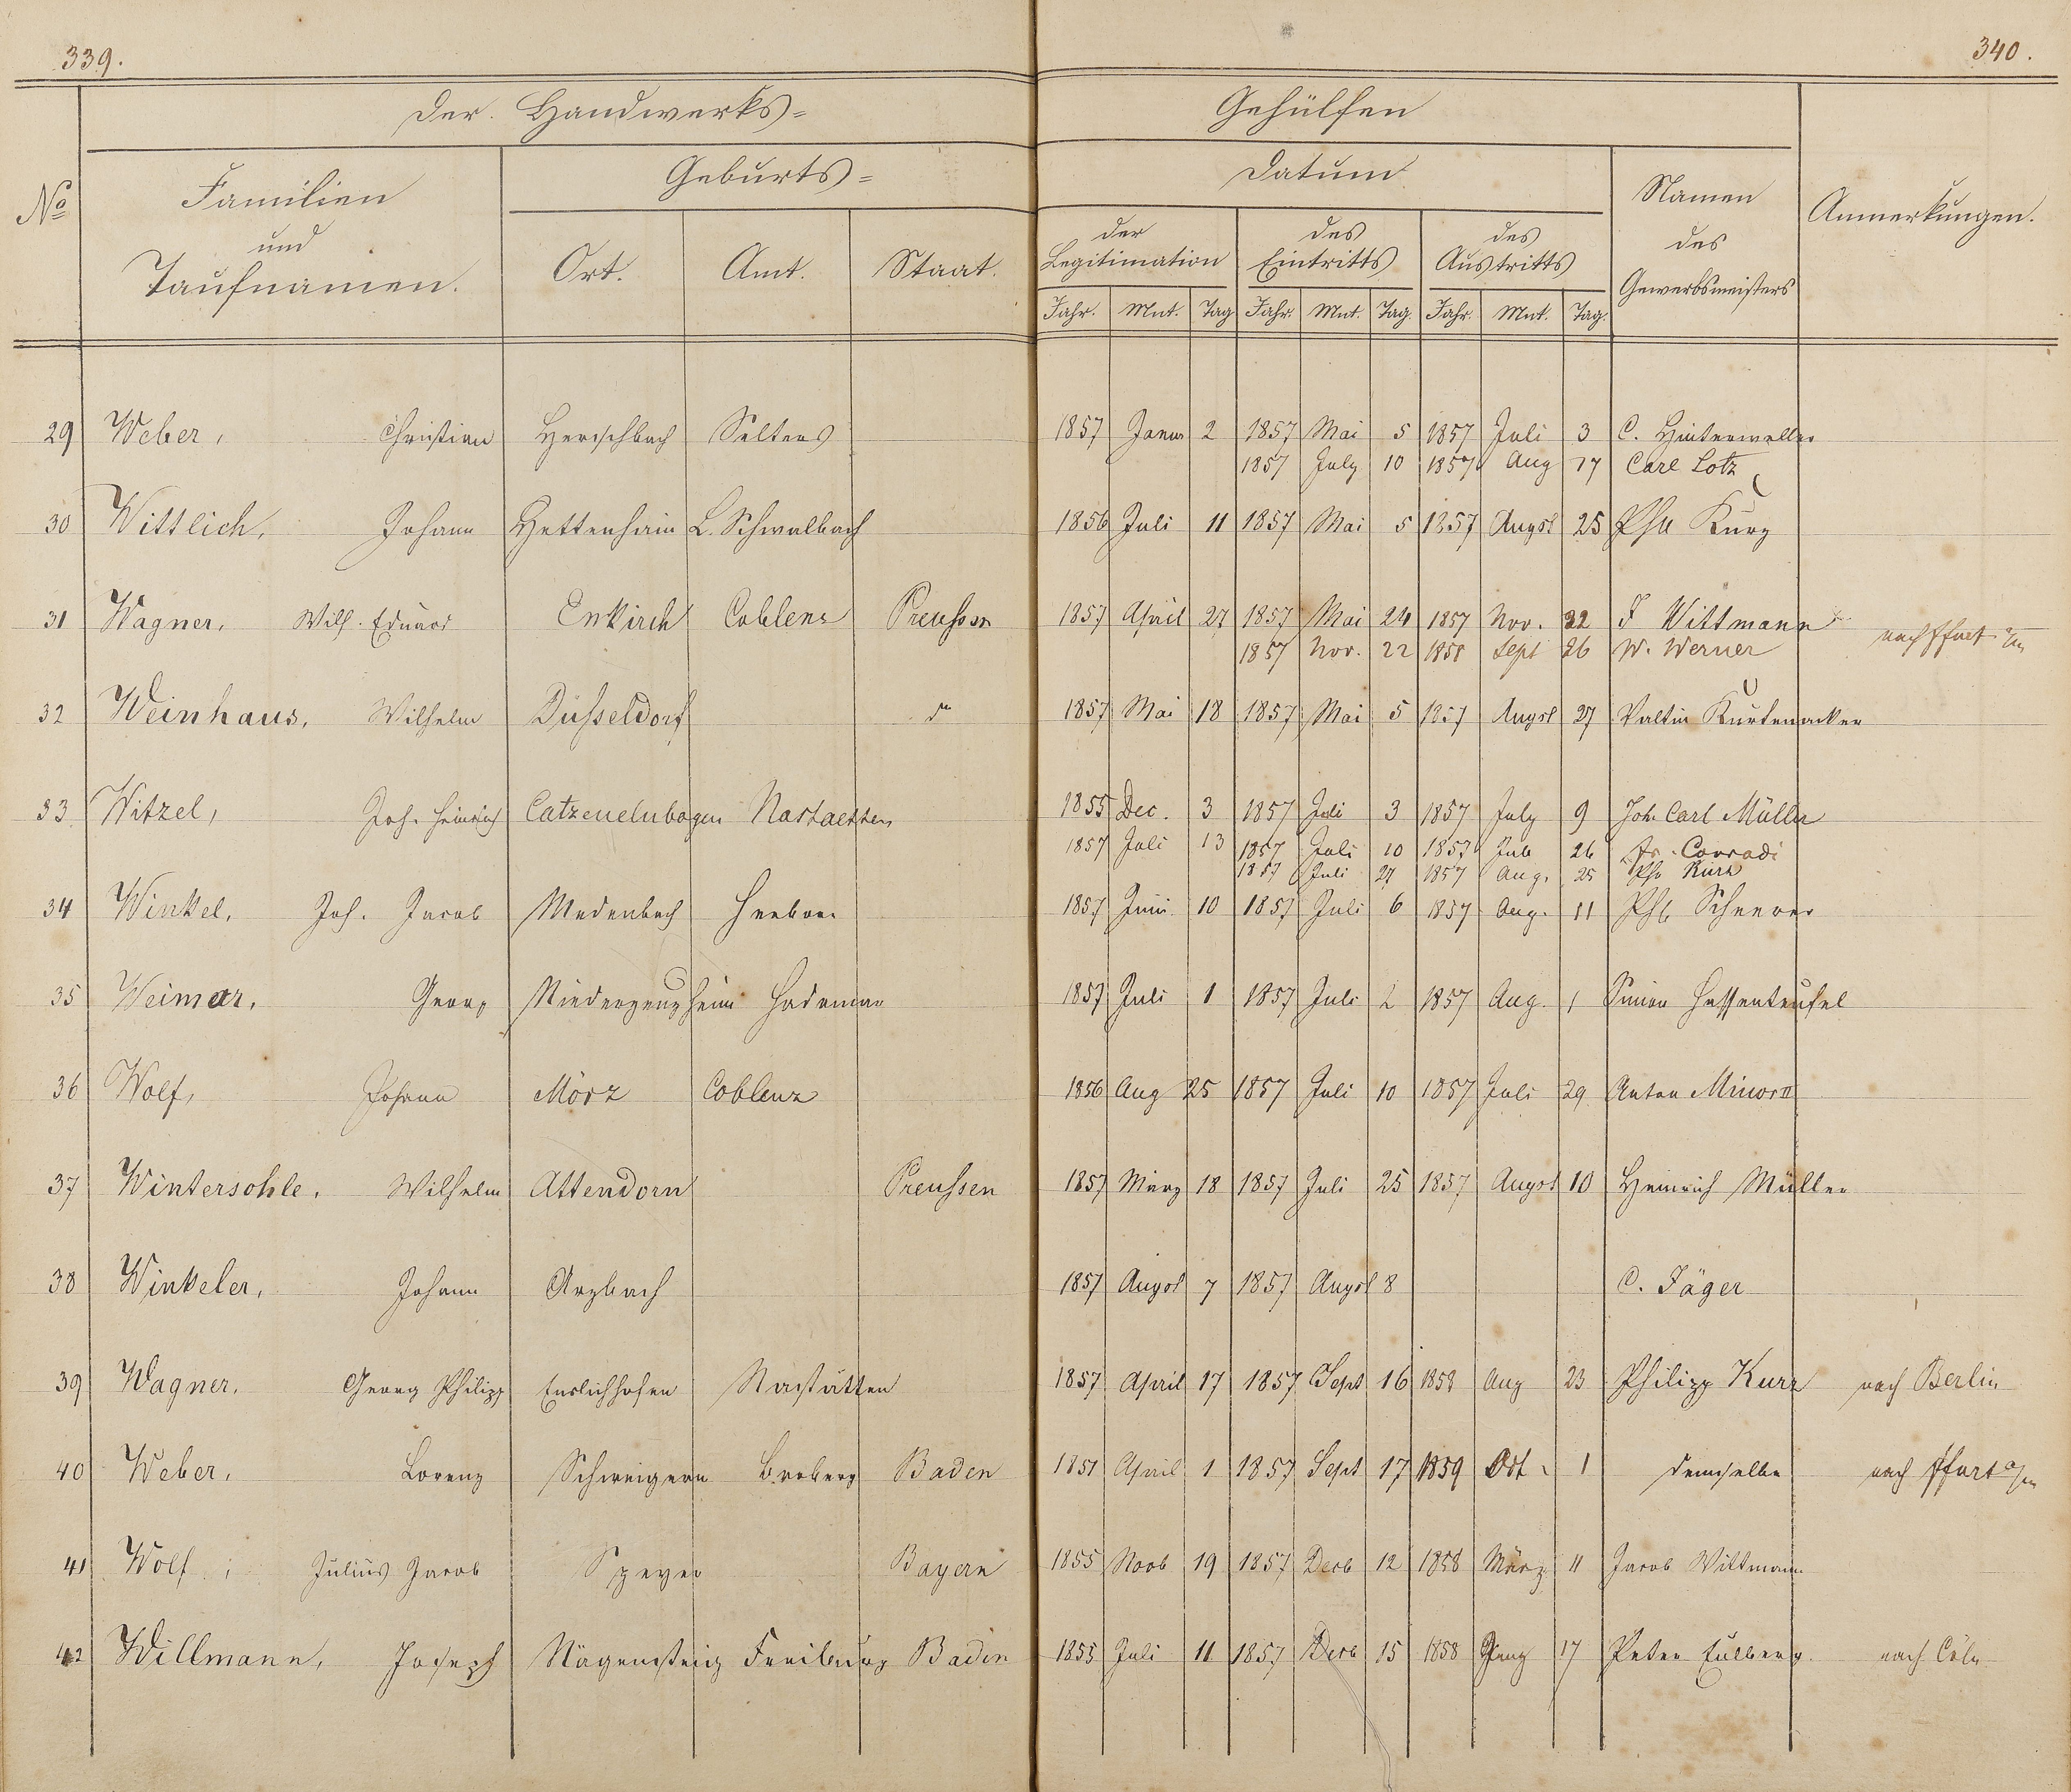 339.
340.
Der Handwerks=
Gehülfen
No
Familien
und
Taufnamen.
Geburts=
Ort.
Amt.
Staat.
Datum
der
Legitimation
des
Eintritts
des
Austritts
Jahr. Mnt. Tag Jahr. Mnt. Tag. Jahr. Mnt. Tag.
Namen
des
Gewerbsmeisters
Anmerkungen.
29 Weber, Christian Herschbach Selters 1857 Janu 2 1857 Mai 5 1857 Juli 3 C. Hinterweller
1857 July 10 1857 Aug 17 Carl Lotz
30 Wittlich, Johann Hettenhain L. Schwalbach 1856 Juli 11 1857 Mai 5 1857 Augst 25 Phil Kurz
31 Wagner, Wilh. Eduard Enkirch Coblenz Preussen 1857 April 27 1857 Mai 24 1857 Nov. 22 J Wittmann
1857 Nov. 22 1858 Sept 26 W. Werner nach Ffurt a/m
32 Weinhaus, Wilhelm Düsseldorf do 1857 Mai 18 1857 Mai 5 1857 Augst 27 Valtin Kurtenacker
33 Witzel, Joh. Heinrich Catzenelnbogen Nastaetten 1855 Dec. 3 1857 Juli 3 1857 July 9 Joh. Carl Müller
1857 Juli 13 1857 Juli 10 1857 Jul 26 Fr. Conradi
1857 Juli 27 1857 Aug. 25 Ph. Kurz
34 Winkel, Joh. Jacob Medenbach Herborn 1857 Juni 10 1857 Juli 6 1857 Aug. 11 Phl
35 Weimar, Georg Niederzeuzheim Hadamar 1857 Juli 1 1857 Juli 2 1857 Aug. 1 Simon Hassenteufel
36 Wolf, Johann Mörz Coblenz 1856 Aug 25 1857 Juli 10 1857 Juli 29 Anton Minor II
37 Wintersohle, Wilhelm Attendorn Preussen 1857 März 18 1857 Juli 25 1857 Augst 10 Heinrich Müller
38 Winkeler, Johann Arzbach 1857 Augst 7 1857 Augst 8 C. Jäger
39 Wagner, Georg Philipp Endlichhofen Nastätten 1857 April 17 1857 Sept 16 1858 Aug 23 Philipp Kurz nach Berlin
40 Weber, Lorenz Schweigern Boxberg Baden 1851 April 1 1857 Sept 17 1859 Oct. 1 demselben nach Ffurt a/m
41 Wolf, Julius Jacob Speyer Bayern 1855 Novb 19 1857 Decb 12 1858 März 11 Jacob Wittmann
42 Willmann, Joseph Nägenstrig Freiburg Baden 1855 Juli 11 1857 Decb 15 1858 17 Peter Eulberg. nach Cöln